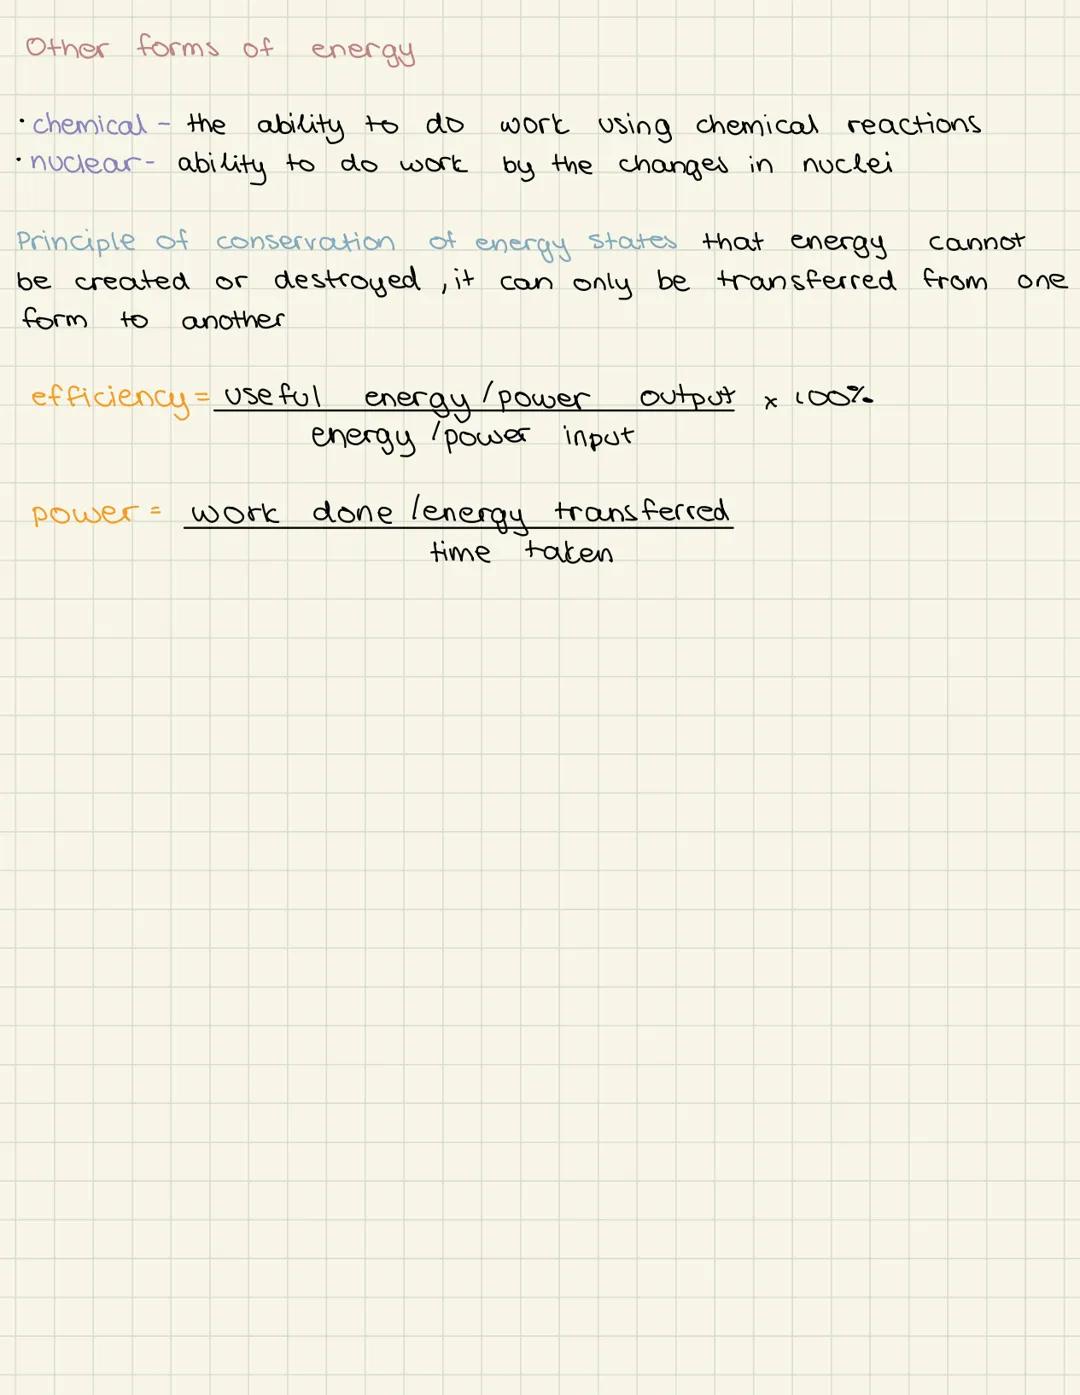 Other forms of energy
· chemical - the ability to do work using chemical reactions
· nuclear - ability to do work by the changes in nuclei
Principle of conservation of energy states that energy cannot
be created or destroyed, it can only be transferred from one
form to another
efficiency = useful energy/power output x 100%
energy/power input
power = work done/energy transferred
time taken